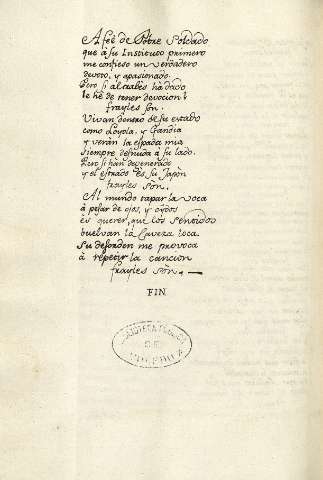 A feé de Pobre Soldado
que à su Instituto primero
me confieso un verdadero
devoto, y apasionado.
Pero si al traves ha dado
le hé de tener devocion?
frayles son.
Vivan dentro de su estado
como Loyola, y Gandia
y verán la espada mia
siempre desnuda à su lado.
Pero si han degenerado
y el estrado es su Japòn
frayles son.
Al mundo tapar la voca
à pesar de ojos, y oydos
es querer, que los sentidos
buelvan la Caveza loca.
Su desorden me provoca
à repetir la cancion
frayles son.
FIN
BIBLIOTECA
DE